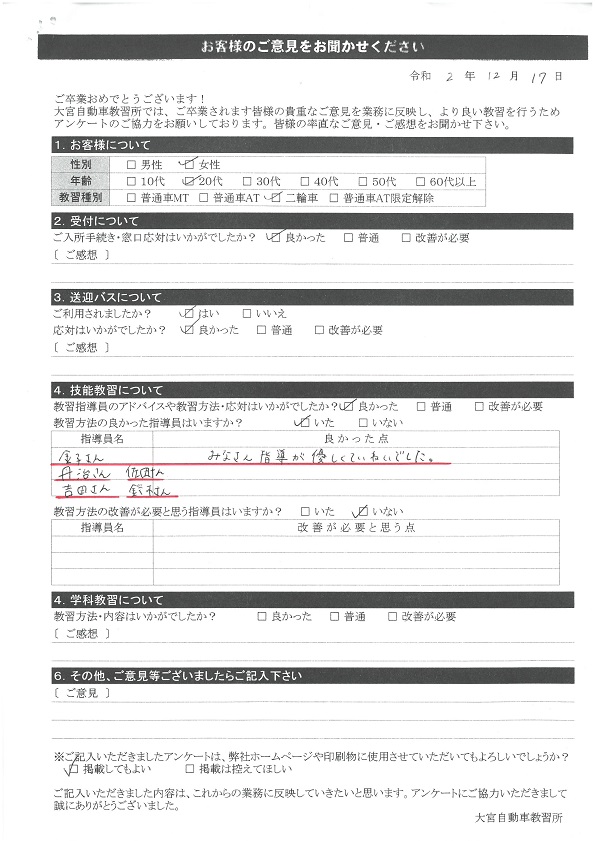 お客様のご意見をお聞かせください
令和 2 年 12 月 17 日
ご卒業おめでとうございます！
大宮自動車教習所では、ご卒業されます皆様の貴重なご意見を業務に反映し、より良い教習を行うため
アンケートのご協力をお願いしております。皆様の率直なご意見・ご感想をお聞かせ下さい。
1．お客様について
性別 □ 男性 ☑ 女性
年齢 □ 10代 ☑ 20代 □ 30代 □ 40代 □ 50代 □ 60代以上
教習種別 □ 普通車MT □ 普通車AT ☑ 二輪車 □ 普通車AT限定解除
2．受付について
ご入所手続き・窓口応対はいかがでしたか？ ☑ 良かった □ 普通 □ 改善が必要
〔 ご感想 〕
3．送迎バスについて
ご利用されましたか？ ☑ はい □ いいえ
応対はいかがでしたか？ ☑ 良かった □ 普通 □ 改善が必要
〔 ご感想 〕
4．技能教習について
教習指導員のアドバイスや教習方法・応対はいかがでしたか？ ☑ 良かった □ 普通 □ 改善が必要
教習方法の良かった指導員はいますか？ ☑ いた □ いない
指導員名 良かった点
金子さん みなさん指導が優しくていねいでした。
丹治さん 佐田さん
吉田さん 鈴村さん
教習方法の改善が必要と思う指導員はいますか？ □ いた ☑ いない
指導員名 改善が必要と思う点
4．学科教習について
教習方法・内容はいかがでしたか？ □ 良かった □ 普通 □ 改善が必要
〔 ご感想 〕
6．その他、ご意見等ございましたらご記入下さい
〔 ご意見 〕
※ご記入いただきましたアンケートは、弊社ホームページや印刷物に使用させていただいてもよろしいでしょうか？
☑ 掲載してもよい □ 掲載は控えてほしい
ご記入いただきました内容は、これからの業務に反映していきたいと思います。アンケートにご協力いただきまして
誠にありがとうございました。
大宮自動車教習所